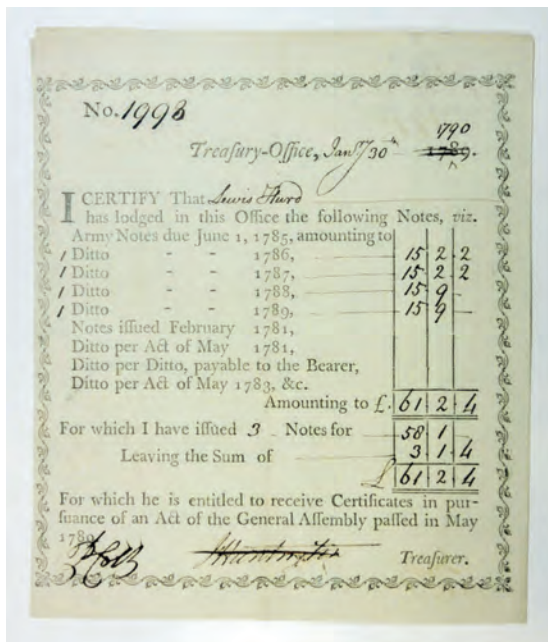 No. 1998
1790
Treasury-Office, Jany 30th 1789.
I CERTIFY That Lewis Hurd
has lodged in this Office the following Notes, viz.
Army Notes due June 1, 1785, amounting to
1 Ditto - - 1786, 15 2 2
1 Ditto - - 1787, 15 2 2
1 Ditto - - 1788, 15 9 -
1 Ditto - - 1789, 15 9 -
Notes issued February 1781,
Ditto per Act of May 1781,
Ditto per Ditto, payable to the Bearer,
Ditto per Act of May 1783, &c.
Amounting to £. 61 2 4
For which I have issued 3 Notes for 58 1
Leaving the Sum of 3 1 4
£ 61 2 4
For which he is entitled to receive Certificates in pur-
suance of an Act of the General Assembly passed in May
1789.
J Huntington Treasurer.